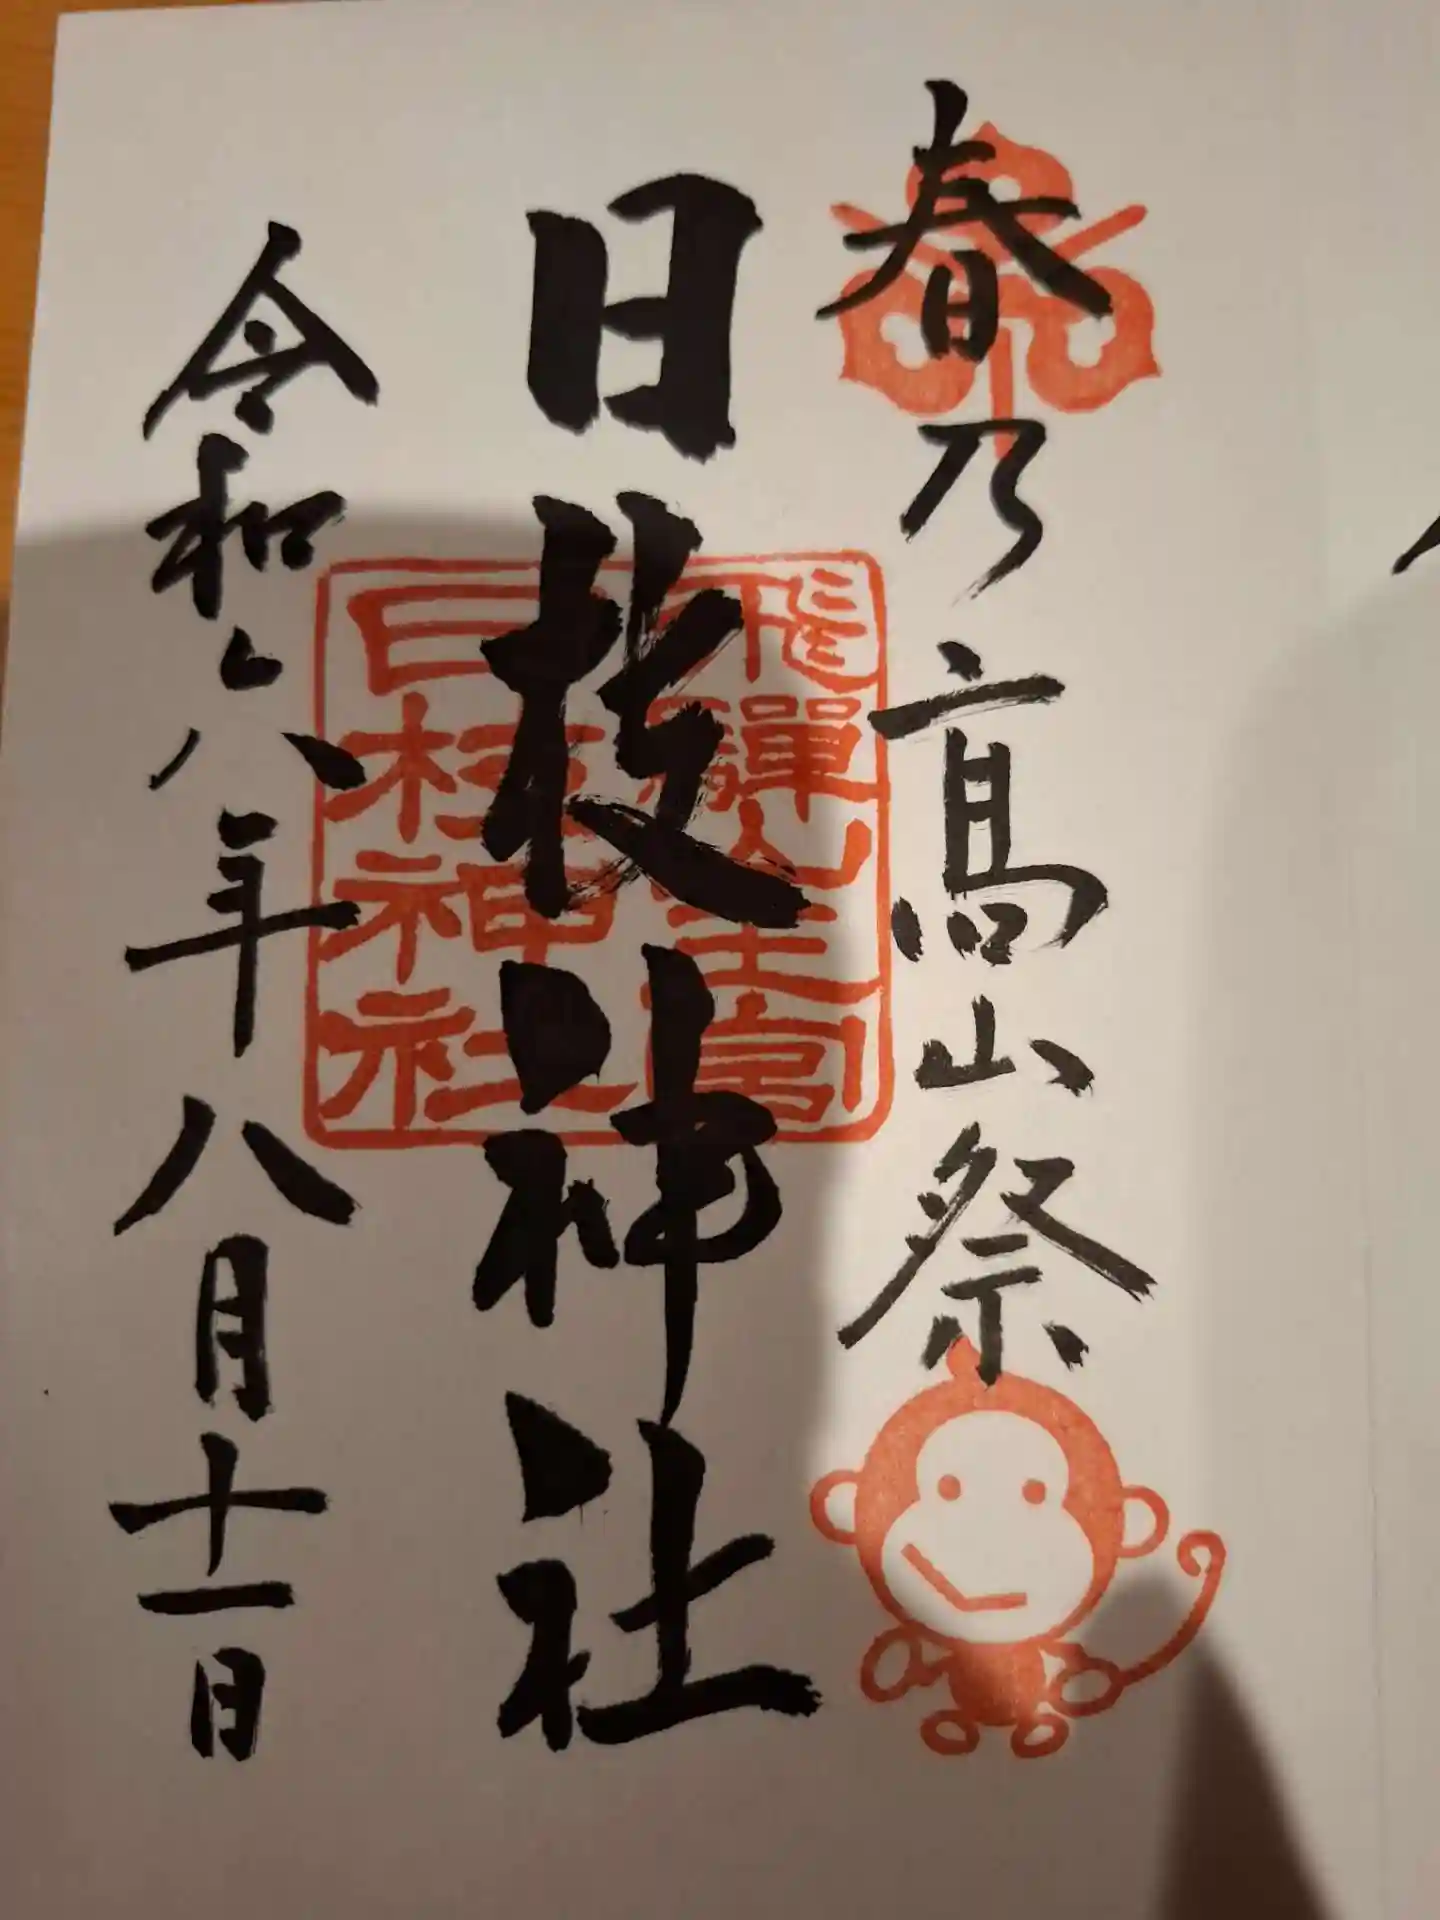 春乃高山祭
日枝神社
飛驒山王宮
日枝神社
令和六年八月十一日